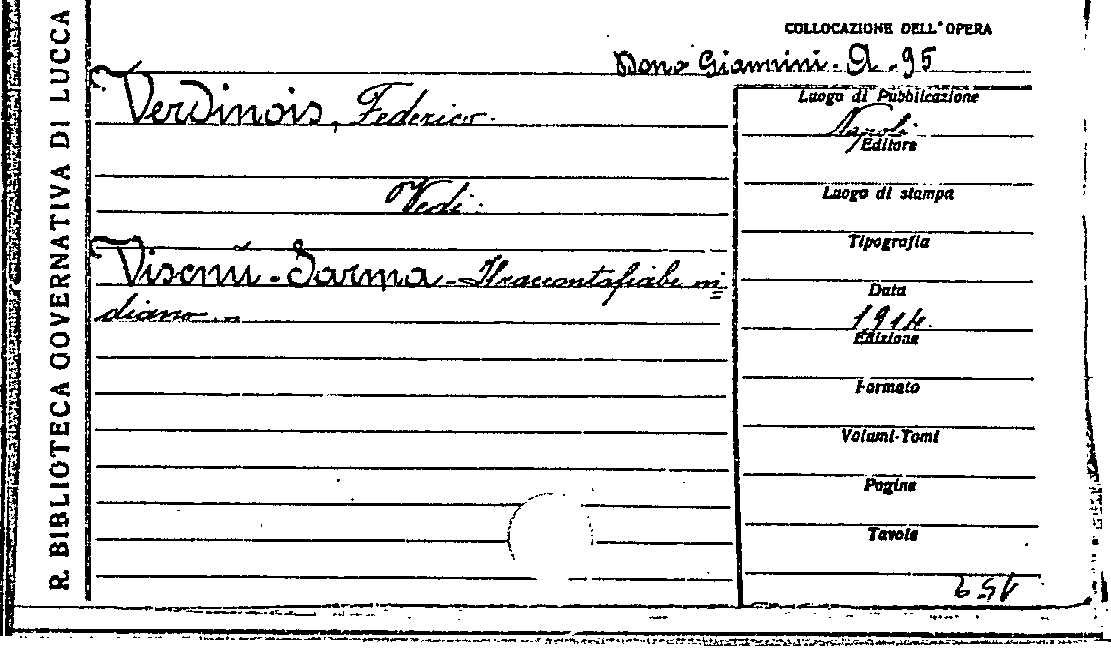 R. BIBLIOTECA GOVERNATIVA DI LUCCA
COLLOCAZIONE DELL'OPERA
Dono Giannini. A. 95
Verdinois, Federico.
Vedi:
Viscnú-Sarma - Il raccontafiabe in
diano. -
Luogo di Pubblicazione
Napoli
Editore
Luogo di stampa
Tipografia
Data
1914.
Edizione
Formato
Volumi-Tomi
Pagine
Tavole